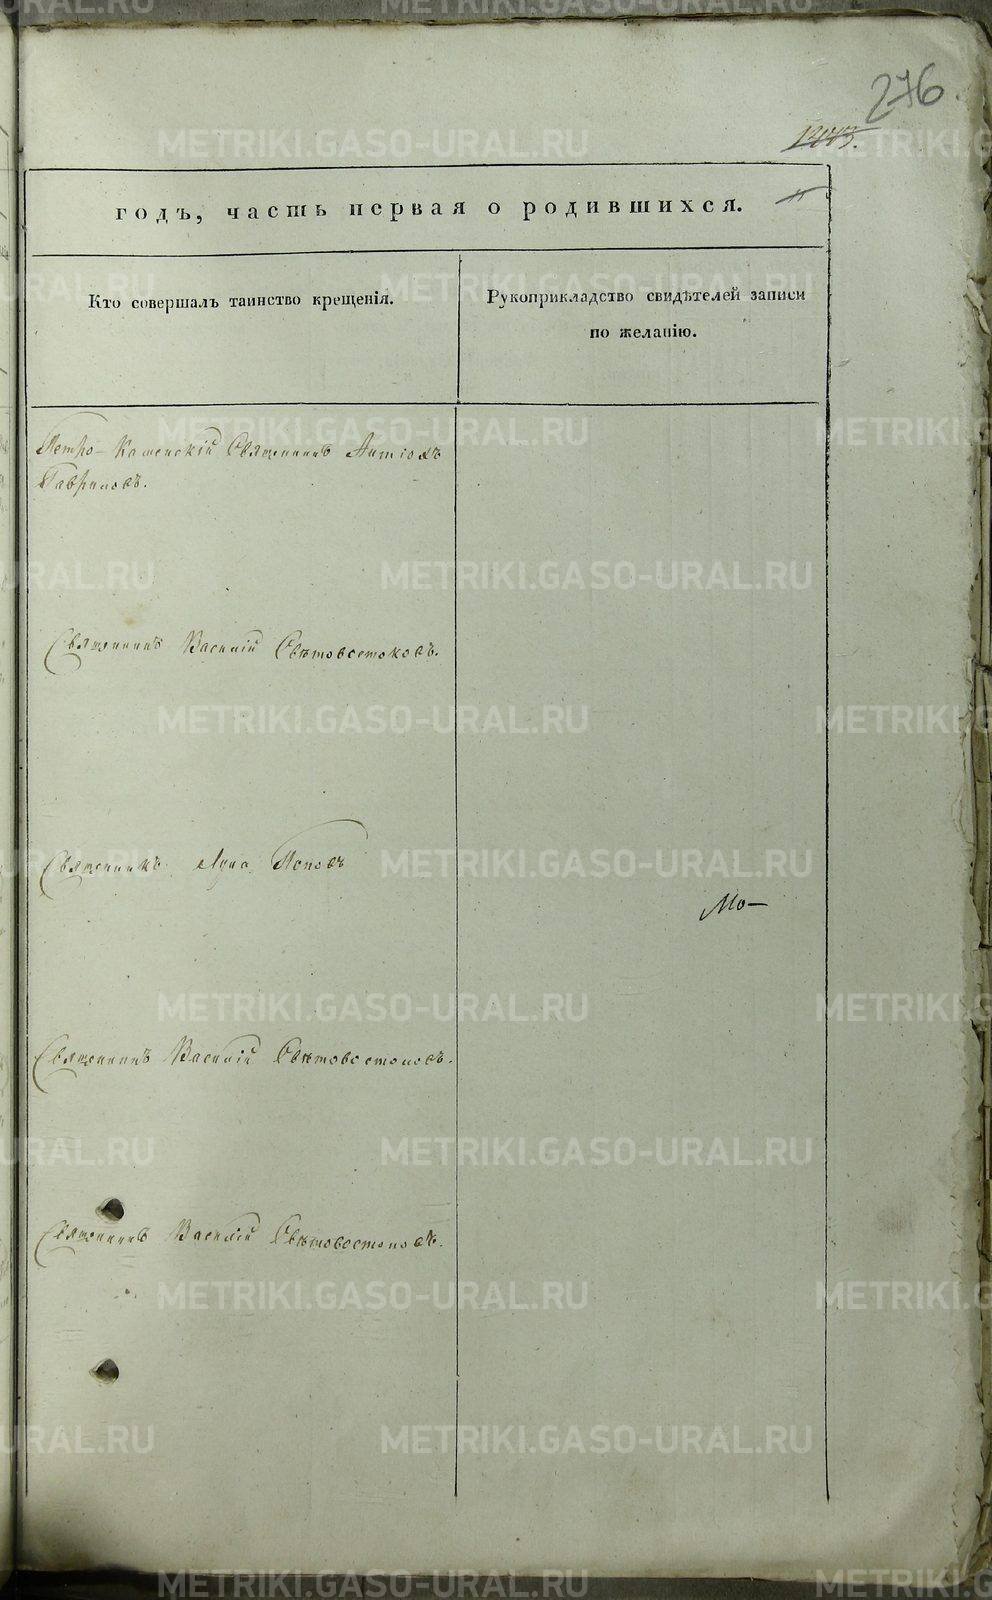 276
годъ, часть первая о родившихся.
Кто совершалъ таинство крещенія.
Рукоприкладство свидѣтелей записи
по желанію.
Петро-Каменскій Священникъ Антіохъ
Гавриловъ.
Священникъ Василій Свѣтовостоковъ.
Священникъ Лука Поповъ
Мо-
Священникъ Василій Свѣтовостоковъ.
Священникъ Василій Свѣтовостоковъ.
METRIKI.GASO-URAL.RU